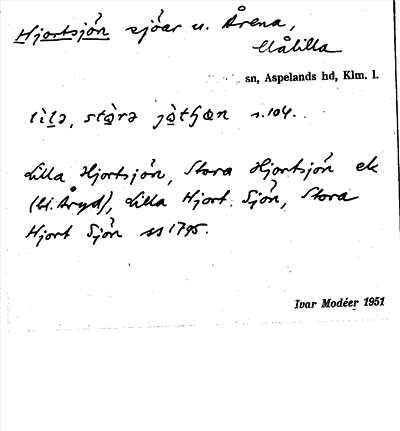 Hjortsjön sjöar u. Årena,
Målilla
sn, Aspelands hd, Klm. l.
lìlə, stòrə jòtʃøn s. 104.
Lilla Hjortsjön, Stora Hjortsjön ek
(bl. Åryd), Lilla Hjort Sjön, Stora
Hjort Sjön ss 1795.
Ivar Modéer 1951